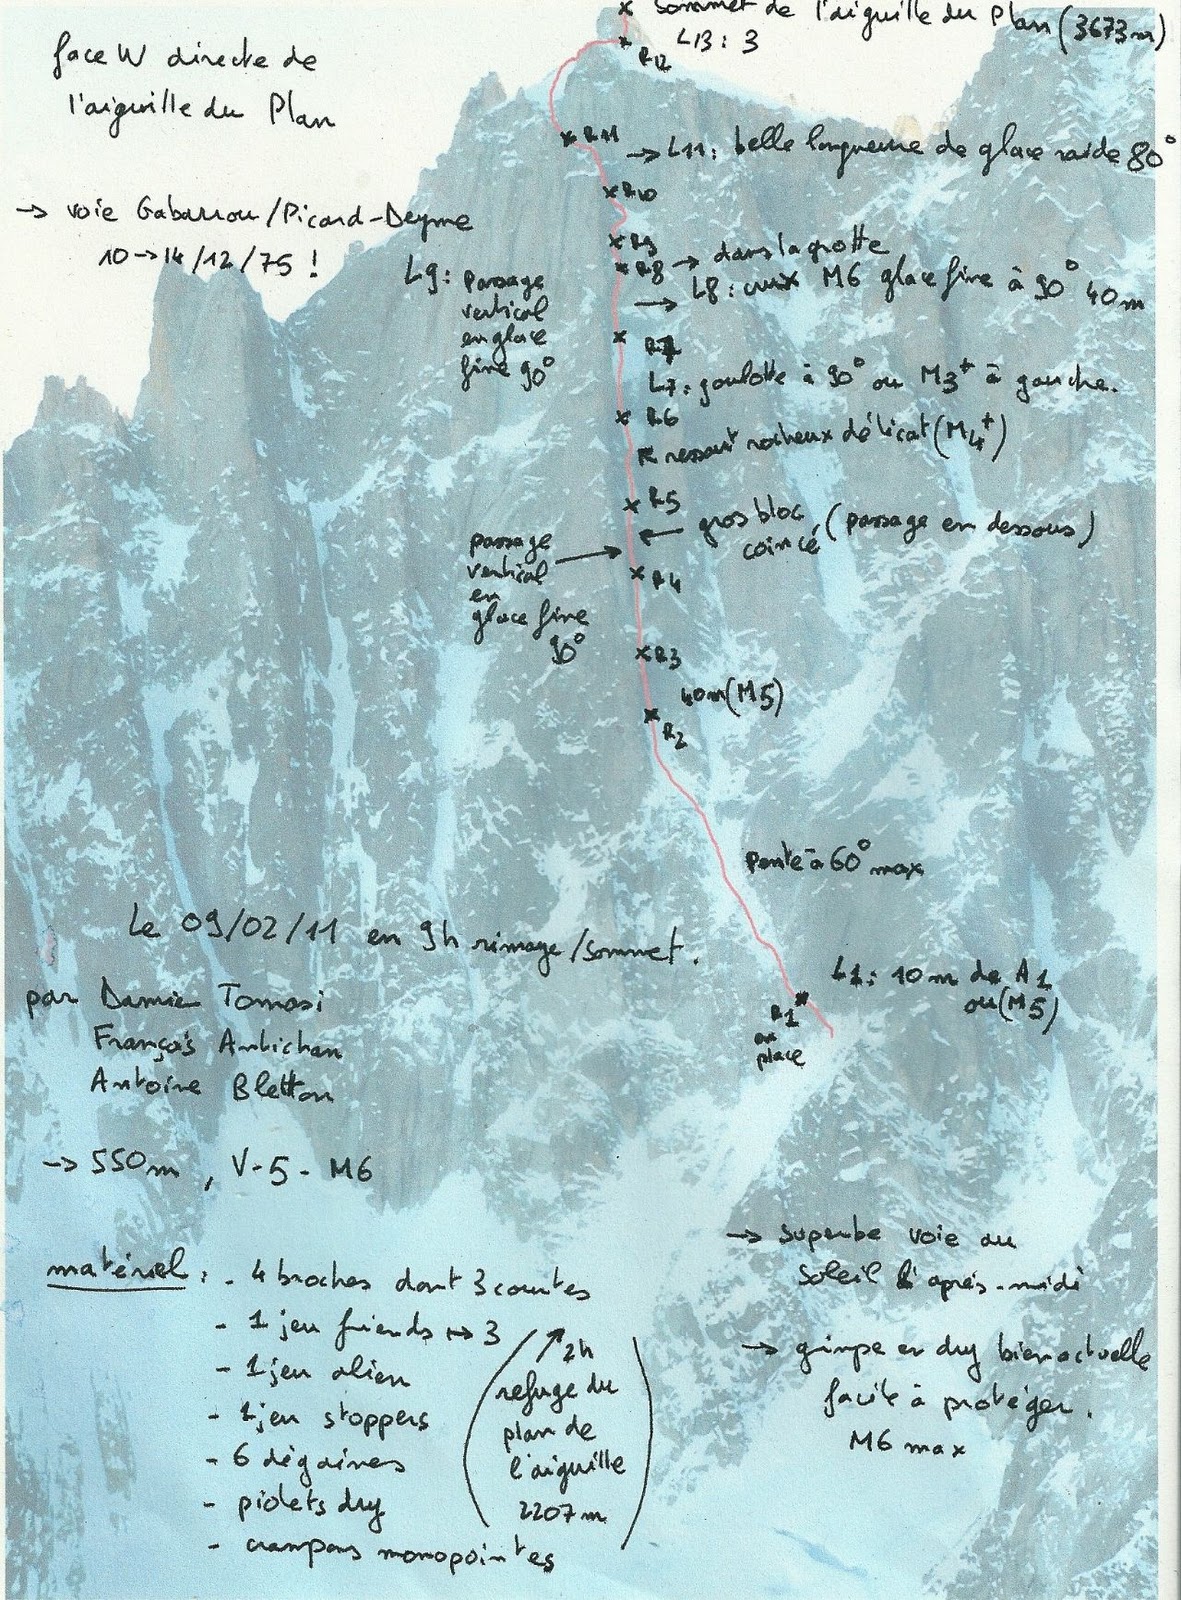 sommet de l'aiguille du Plan (3673m)
L13 : 3
R12
face W directe de
l'aiguille du Plan
R11
→ L11 : belle longueur de glace raide 80°
R10
→ voie Gabarrou/Picard-Deyme
10→14/12/75 !
R9
R8 → dans la grotte
L9 : passage
vertical
en glace
fine 90°
→ L8 : crux M6 glace fine à 90° 40m
R7
L7 : goulotte à 90° ou M3+ à gauche.
R6
ressaut rocheux délicat (M4+)
R5
← gros bloc
coincé
(passage en dessous)
passage
vertical
en
glace fine
90°
R4
R3
40m (M5)
R2
pente à 60° max
Le 09/02/11 en 9h rimaye/sommet.
par Damien Tomasi
François Antichan
Antoine Bletton
L1 : 10m de A1
ou (M5)
R1
en
place
→ 550m, V-5-M6
matériel : - 4 broches dont 3 courtes
- 1 jeu friends ↦ 3
- 1 jeu alien
- 1 jeu stoppers
- 6 dégaines
- piolets dry
- crampons monopointes
2h
refuge du
plan de
l'aiguille
2207m
→ superbe voie au
soleil l'après-midi
→ grimpe en dry bien actuelle
facile à protéger.
M6 max